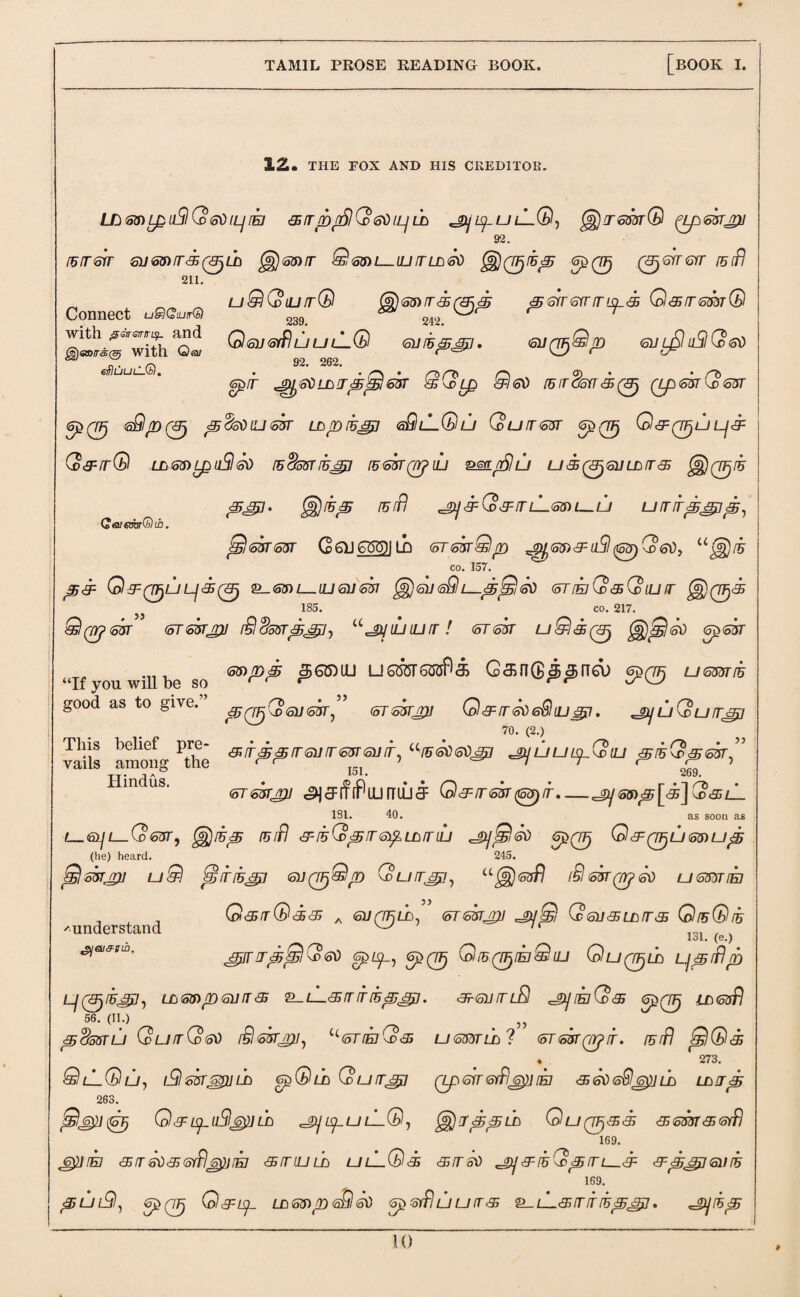 TAMIL PROSE READING BOOK. [BOOK I.
12. THE FOX AND HIS CREDITOR.
மழையிலேயுங் காற்றிலேயும் அடிபட்டு, இரண்டு மூன்று
92.
நாள் வரைக்கும் இரை கிடையாமல் இருந்த ஒரு குள்ள நரி
211.
Connect பசியோடு with தள்ளாடி and இரைக்கு with வெளிப்பட்டு.
பசியோடு இரைக்குத் தள்ளாடிக் கொண்டு
239. 242.
வெளிப்பட்டு வந்தது. வருகிற வழியிலே
92. 262.
ஓர் ஆலமரத்தின் கீழே சில நாளைக்கு முன்னே
ஒரு விறகு தலையன் மறந்து விட்டுப் போன ஒரு செருப்புச்
சோடு மழையில் நனைந்து நன்றாய் உளறிப் பக்குவமாக இருந்
தது. இந்த நரி அச்சோட்டைப் பார்த்துத்,
வேண்டும்.
தின்ன வேணும் என்கிற ஆசையினாலே, “இந்
co. 157.
தச் செருப்புக்கு உடையவன் இவ்விடத்தில் எங்கேயோ இருக்
185. co. 217.
கிறான்” என்று நினைத்து, “அய்யா! என் பசிக்கு இதில் ஒன்
“If you will be so good as to give.”
றைத் தயை பண்ணிக் கொடுத்தால் ஒரு பணந்
தருவேன்,” என்று சொல்லியது. அப்போது
70. (2.)
This belief prevails among the Hindūs.
காத்தாவானவர், “நல்லது அப்படியே தந்தேன்,”
151. 269.
என்று அசரீரியாய்ச் சொன்னார்.—அதை[க்]கேட்
131. 40. as soon as
டவுடனே, இந்த நரி சந்தோஷமாய் ஆதில் ஒரு செருப்பைத்
(he) heard. 245.
தின்று பசி தீர்ந்து வருகிற போது, “இனி நின்றால் பணங்
^understand அவசரம்.
கொடுக்க ^ வரும்,” என்று அதி வேகமாக நெடுந்
131. (e.)
தூரத்திலே ஓடி, ஒரு நெருங்கிய பெரும் புதரிற்
புகுந்து, மறைவாக உட்கார்ந்தது. சுவாமி அங்கே ஒரு மணி
56. (11.)
தனைப் போலே நின்று, “எங்கே பணம்?” என்றார். நரி திடுக்
273.
கிட்டுப், பின்னும் ஒடும் போது முள்ளினுங் கல்லினும் மரத்
263.
தினுஞ் செடியினும் அடிபட்டு, இரத்தம் பெருக்கக் கண்களி
169.
னுங் கால்களினுங் காயம் பட்டுக் கால் அசந்தோடச் சத்துவந்
169.
தப்பி, ஒரு செடி மறைவில் ஒளிப்பாக உட்கார்ந்தது. அந்த
10